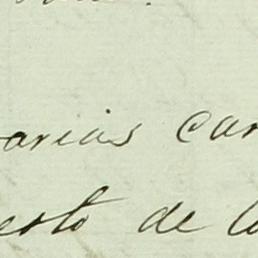 arias car
esto de l